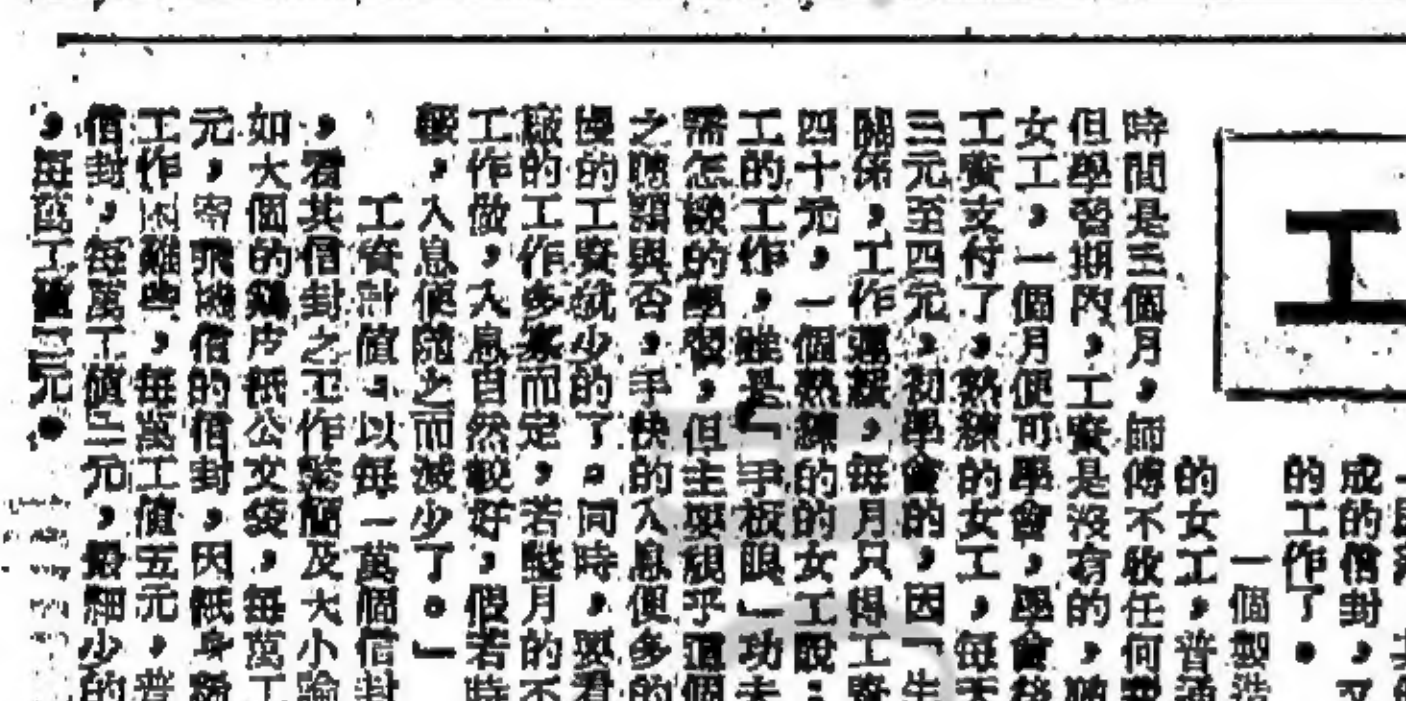 工
成的信封，又
的工作了。
一個製造
的女工，普通
時間是三個月，師傅不收任何
但學習期內，工資是沒有的，
女工，一個月便可學會，學會後
工資支付了，熟練的女工，每天
三元至四元，初學會的，因「生
關係，工作遲緩，每月只得工資
四十元，一個熟練的的女工說：
工的工作，雖是「爭板眼」功夫
需怎樣的學習，但主要視乎這個
之聰穎與否，手快的入息便多的
慢的工資就少的了。同時，要看
廠的工作多寡而定，若整月的不
工作做，入息自然較好，假若時
，入息便隨之而減少了。」
工資計值，以每一萬個信封
，看其信封之工作繁簡及大小論
如大個的雞皮紙公文袋，每萬工
元，寄飛機信的信封，因紙身
工作困難些，每萬工值五元，普
信封，每萬工值三元，最細少的
，每萬工值元。